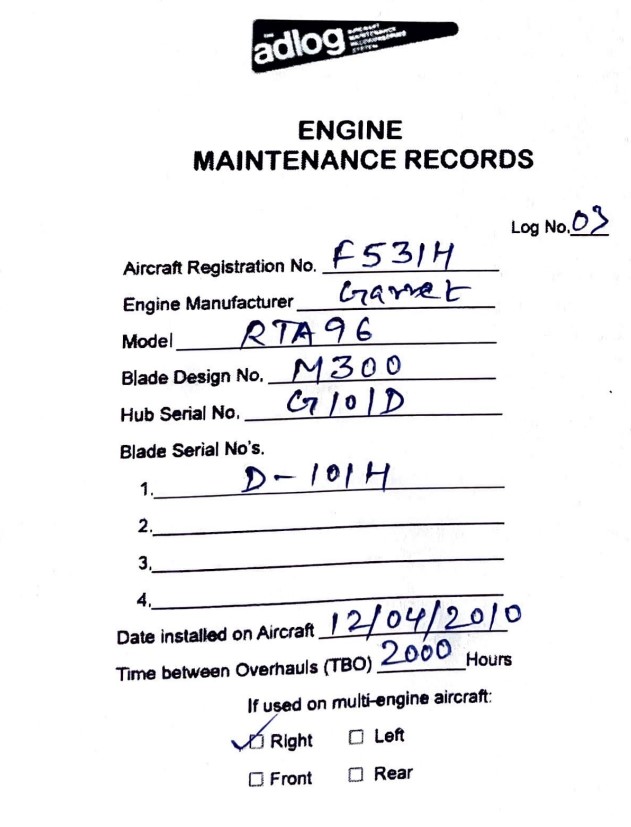 THE
adlog AIRCRAFT
MAINTENANCE
RECORDKEEPING
SYSTEM
ENGINE
MAINTENANCE RECORDS
Log No. 03
Aircraft Registration No. F531H
Engine Manufacturer Garret
Model RTA96
Blade Design No. M300
Hub Serial No. G101D
Blade Serial No's.
1. D-101H
2.
3.
4.
Date installed on Aircraft 12/04/2010
Time between Overhauls (TBO) 2000 Hours
If used on multi-engine aircraft:
Right Left
Front Rear